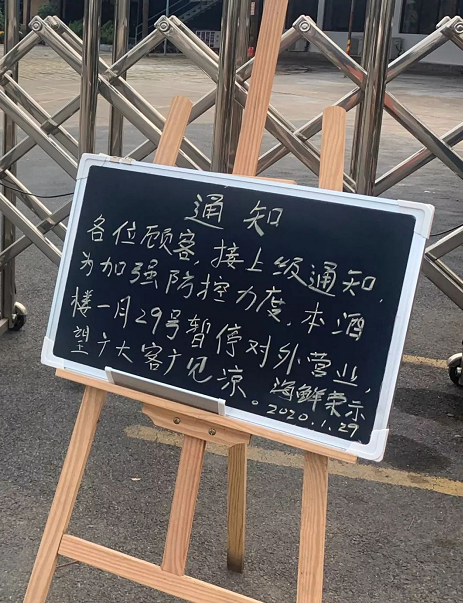 通知
各位顾客，接上级通知，
为加强防控力度，本酒
楼一月29号暂停对外营业，
望广大客户见凉。海鲜荣示
2020.1.29